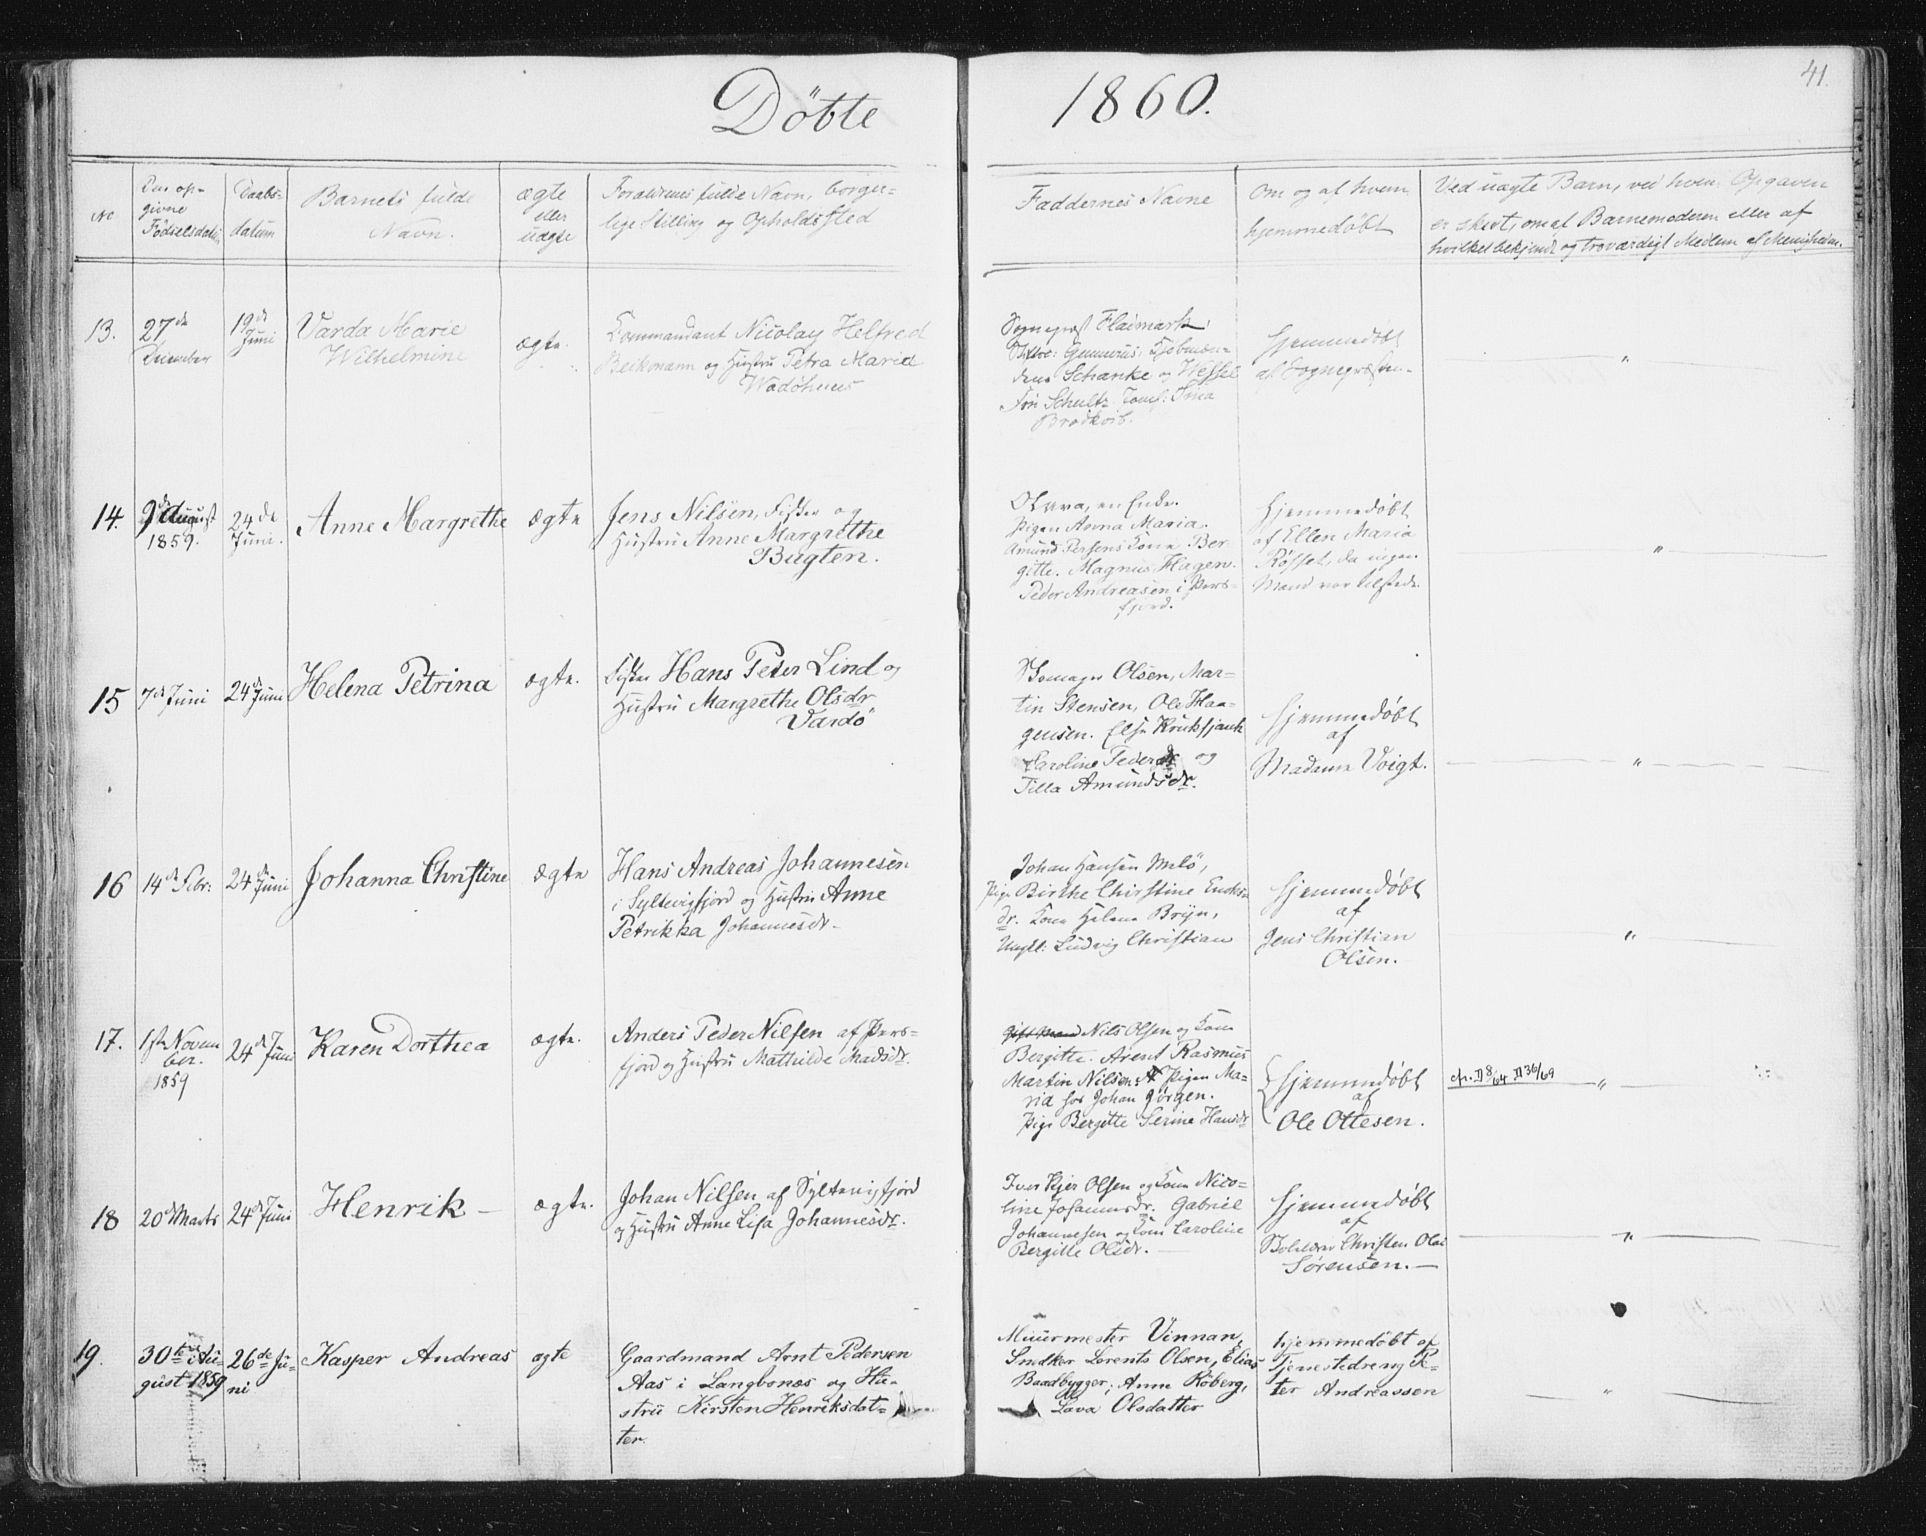 Döbte 1860.
41.
No
Den op-
givne
Födselsdatum
Daabs-
datum
Barnets fulde
Navn.
ægte
eller
uægte
Forældrenes fulde Navn, borger-
lige Stilling og Opholdssted
Faddernes Navne
Om og af hvem
hjemmedöbt
Ved uægte Barn, ved hvem Opgaven
er skeet, om af Barnemoderen eller af
hvilket bekjendt og troværdigt Medlem af Menigheden.
13.
27de
December
19de
Juni
Varda Marie
Wilhelmine
ægte.
Commandant Nicolay Helfred
Beikmann og Hustru Petra Maria
Wadöhuus
Sognepræst Flaimark,
Gunnerus,
dene Schanke og Wessel
Schultz
Hjemmedöbt
af Sognepræsten.
"
14.
9de August
1859.
24de
Juni.
Anne Margrethe
ægte
Jens Nilsen, Fisker og
Hustru Anne Margrethe
Bugten.
Olava, en Enke.
Pigen Anna Maria.
Amund Persens Kone Ber-
gitte. Magnus Hagen.
Peder Andreasen i Pers-
fjord.
Hjemmedöbt
af Ellen Maria
Røsset, da ingen
Mand var tilstede.
"
15
7de Juni
24de Juni
Helena Petrina
ægte.
Fisker Hans Peder Lind og
Hustru Margrethe Olsdr
Vardö
Olsen, Mar-
tin Stensen, Ole Haa-
gensen. Else Krukfjank
Caroline Pedersdr og
Tilla Amundsdr.
Hjemmedöbt
af
Madame Voigt.
"
16
14de Febr:
24de Juni
Johanna Christine
ægte
Hans Andreas Johannesen
i Syltevigfjord og Hustru Anne
Petrikka Johannesdr.
Johan Hansen Melö,
Pige Birthe Christine Enoks-
dr. Kone Helene Brijn,
Ungk: Ludvig Christian
Hjemmedöbt
af
Jens Christian
Olsen.
"
17.
1ste Novem
ber.
1859
24de Juni
Karen Dorthea
ægte.
Anders Peder Nilsen af Pers-
fjord og Hustru Mathilde Madsdr.
Nils Olsen og Kone
Bergitte. Arent Rasmus
Martin Nilsen. Pigen Ma-
ria hos Johan Jörgen.
Pige Bergitte Serine Hansdr
Hjemmedöbt
af
Ole Ottesen.
cfr. D 8/64 D 36/69
"
18
20de Marts
24de Juni
Henrik
ægte.
Johan Nilsen af Syltevigfjord
og Hustru Anne Lisa Johannesdr.
Iver Kjer Olsen og Kone Nico-
line Johannesdr. Gabriel
Johannesen og Kone Caroline
Bergitte Olsdr.
Hjemmedöbt
af
Christen Olai
Sörensen.
"
19.
30te Au-
gust 1859
26de Ju-
ni
Kasper Andreas
ægte
Gaardmand Arnt Pedersen
Aas i Langbonæs og Hu-
stru Kirsten Henriksdat-
ter.
Muurmester Vinnan,
Snedker Lorents Olsen, Elias
Baadbygger, Anne Köberg,
Lava Olsdatter
hjemmedöbt af
Tjenestedreng Pe-
ter Andreassen
"